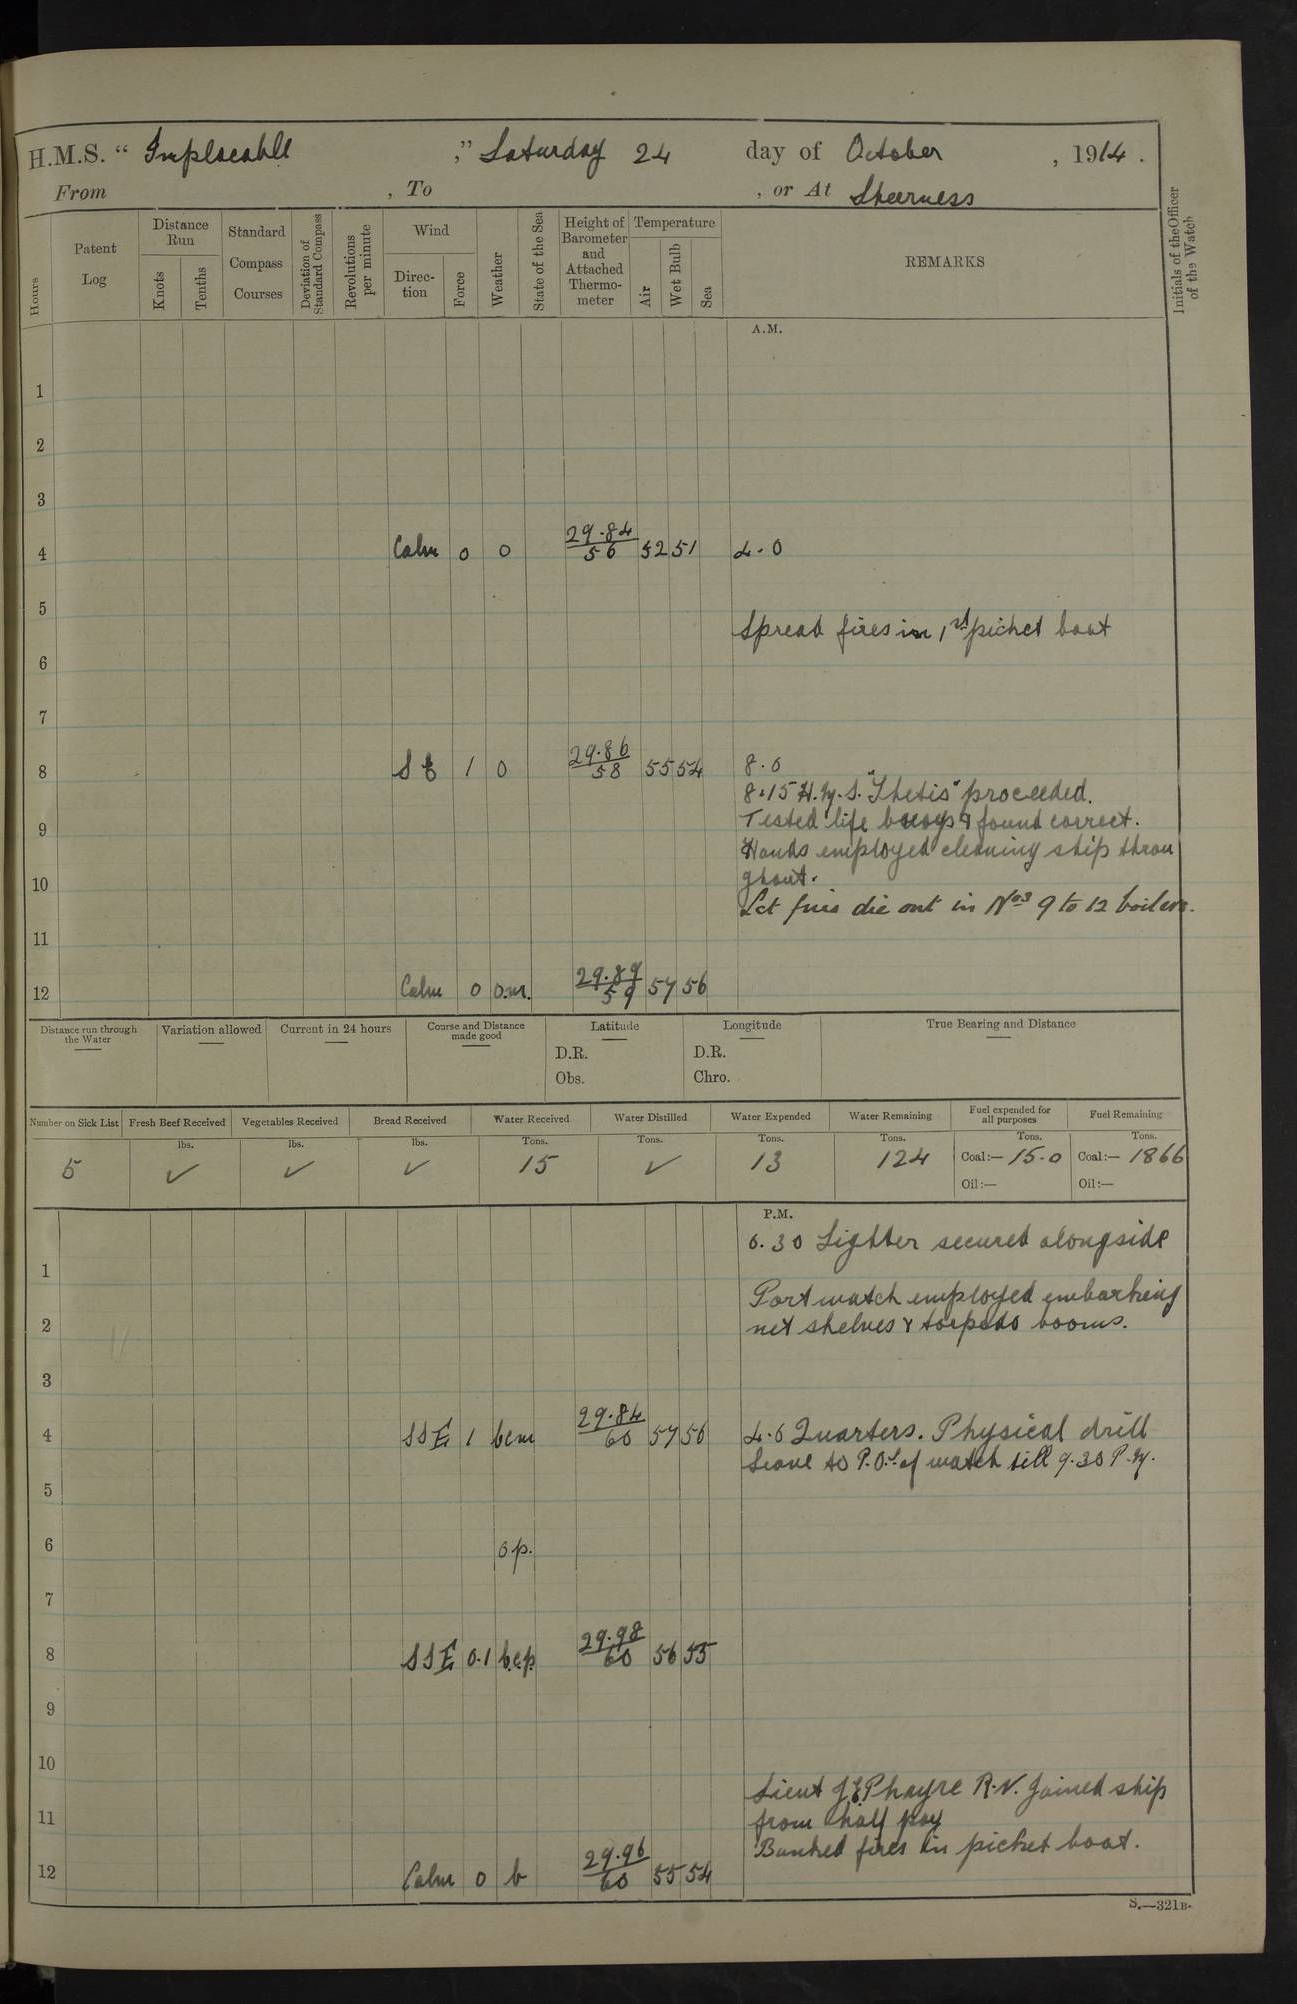 H.M.S. " Implacable ," Saturday 24 day of October , 1914 .
From , To , or At Sheerness
Hours
Patent Log
Distance Run
Knots
Tenths
Standard Compass Courses
Deviation of Standard Compass
Revolutions per minute
Wind
Direc-tion
Force
Weather
State of the Sea
Height of Barometer and Attached Thermo-meter
Temperature
Air
Wet Bulb
Sea
REMARKS
Initials of the Officer of the Watch
A.M.
1
2
3
4 Calm 0 0 29.84/56 52 51 4.0
5
Spread fires in 1st picket boat
6
7
8 SE 1 0 29.86/58 55 54 8.0
8.15 H.M.S. "Thetis" proceeded.
9 Tested life buoys & found correct.
Hands employed cleaning ship throu
10 ghout.
Let fires die out in Nos 9 to 12 boilers.
11
12 Calm 0 o.m. 29.89/59 57 56
Distance run through the Water
Variation allowed
Current in 24 hours
Course and Distance made good
Latitude
D.R.
Obs.
Longitude
D.R.
Chro.
True Bearing and Distance
Number on Sick List Fresh Beef Received Vegetables Received Bread Received Water Received Water Distilled Water Expended Water Remaining Fuel expended for all purposes Fuel Remaining
lbs. lbs. lbs. Tons. Tons. Tons. Tons. Tons. Tons.
5 ✓ ✓ ✓ 15 ✓ 13 124 Coal:— 15.0 Coal:— 1866
Oil:— Oil:—
P.M.
0.30 Lighter secured alongside
1
Port watch employed embarking
2 net shelves & torpedo booms.
3
4 SSE 1 bcm 29.84/60 57 56 4.0 Quarters. Physical drill
Leave to P.O.s of watch till 9.30 P.M.
5
6 op.
7
8 SSE 0.1 b.c.p. 29.98/60 56 55
9
10
Lieut J E Phayre R.N. joined ship
11 from half pay
Banked fires in picket boat.
12 Calm 0 b 29.96/60 55 54
S.—321B.